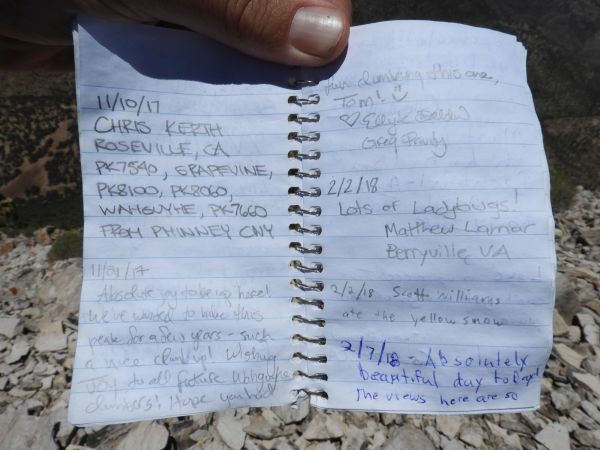 11/10/17
CHRIS KERTH
ROSEVILLE, CA
PK7540, GRAPEVINE,
PK8100, PK8060,
WAHGUYHE, PK7660
FROM PHINNEY CNY
11/21/17
Absolute joy to be up here!
We've wanted to hike this
peak for a few years - such
a nice climb up! Wishing
Joy to all future Wahguyhe
climbers! Hope you had
fun climbing this one,
Tom!
Greg
2/2/18
Lots of Ladybugs!
Matthew Lamar
Berryville VA
2/2/18 Scott Williams
ate the yellow snow
2/7/18 - Absolutely
beautiful day today!
The views here are so